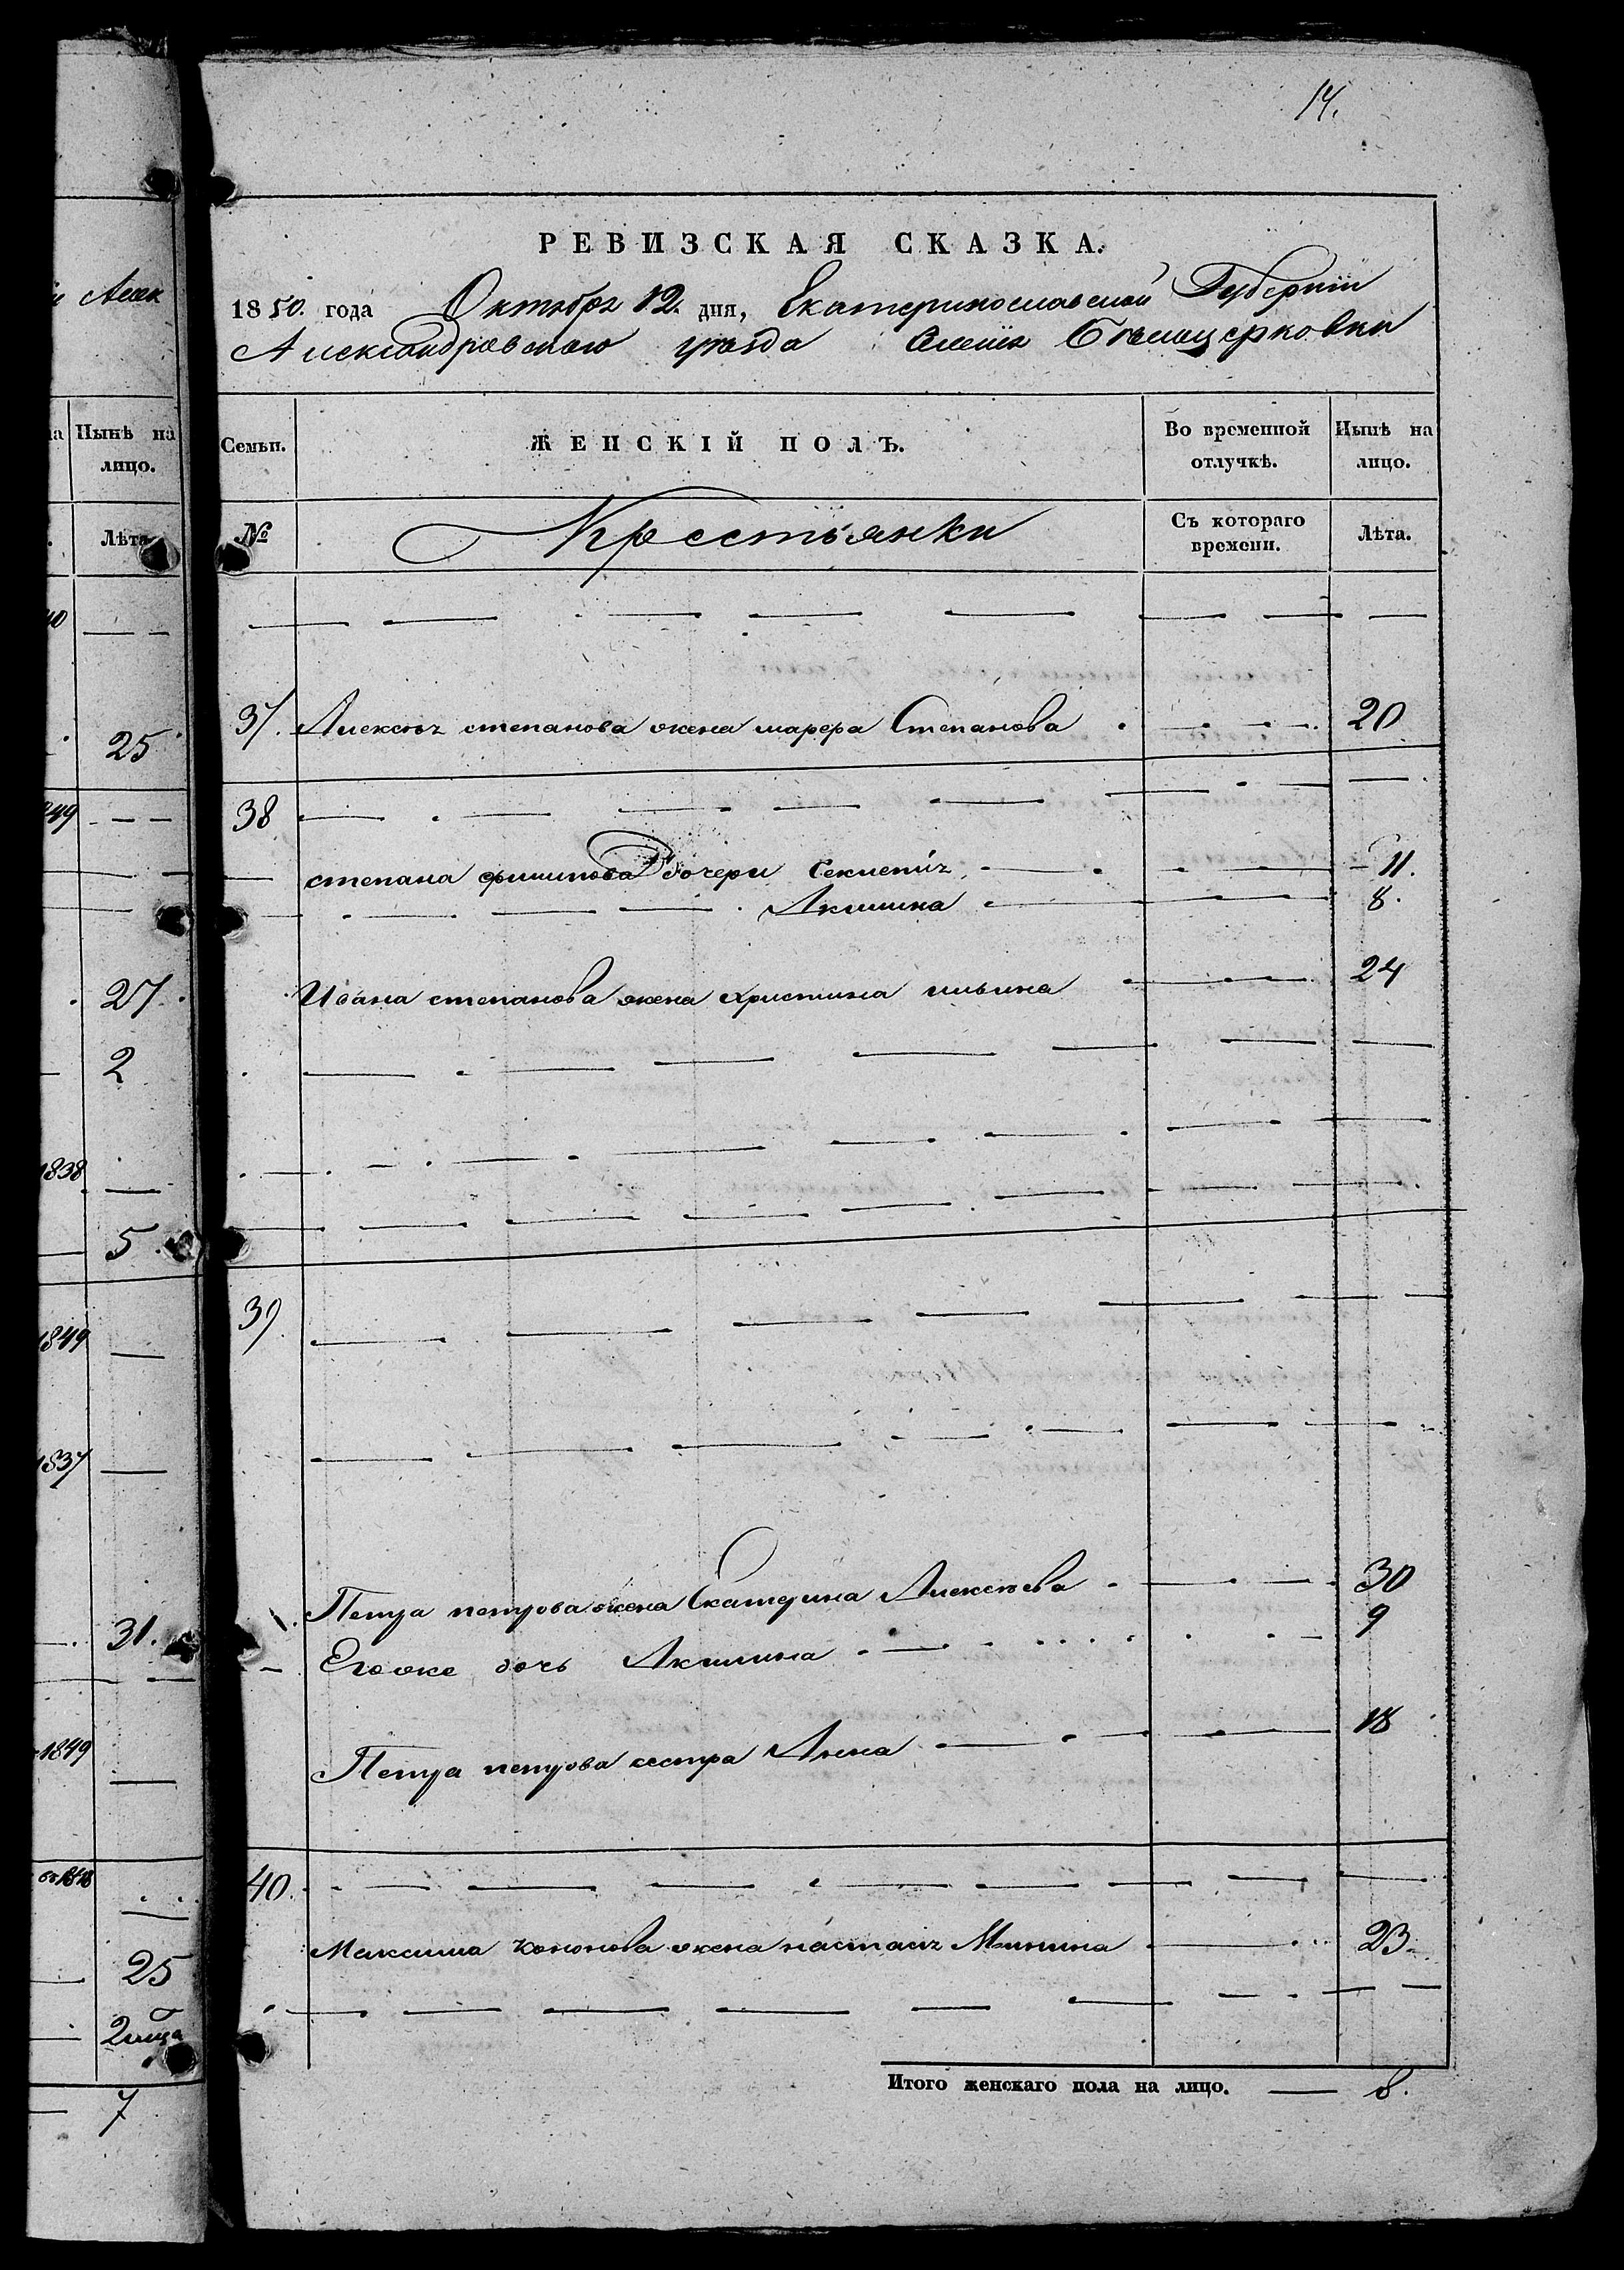 14.
РЕВИЗСКАЯ СКАЗКА.
1850. года Октября 12. дня, Екатеринославской Губерніи
Александровскаго уезда Бѣлоцерковки
Семьи. ЖЕНСКІЙ ПОЛЪ. Во временной отлучкѣ. Нынѣ на лицо.
№ Крестьянки Съ котораго времени. Лѣта.
37. Алексѣя степанова жена марфа Степанова 20
38
степана филипова дочери Секлетія 11.
Акилина 8.
Ивана степанова жена христина ильина 24
39
Петра петрова жена Екатерина Алексѣева 30
Егоже дочь Акилина 9
Петра петрова сестра Анна 18
40.
Максима кононова жена настасія Минина 23
Итого женскаго пола на лицо. 8.
Алек
Нынѣ на лицо.
Лѣта
40
25
849
27.
2
1838
5.
1849
1837
31.
1849
25
7